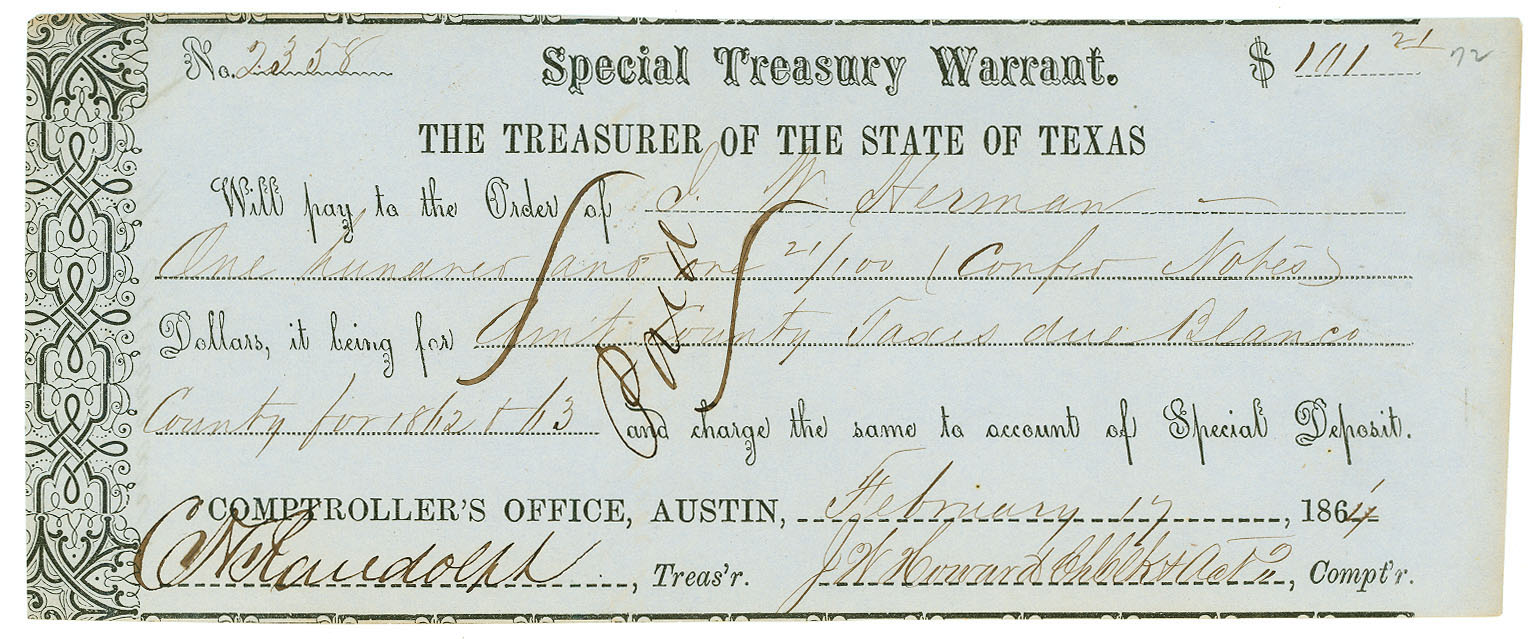 No. 2358 Special Treasury Warrant. $ 101 21 72
THE TREASURER OF THE STATE OF TEXAS
Will pay to the Order of J. W. Herman
One hundred and one 21/100 (Confed Notes)
Dollars, it being for Am't County Taxes due Blanco
County for 1862 & 63 and charge the same to account of Special Deposit.
Paid
COMPTROLLER'S OFFICE, AUSTIN, February 17, 1864
C H Randolph, Treas'r. J W Howard Ch Clk & Act'g, Compt'r.